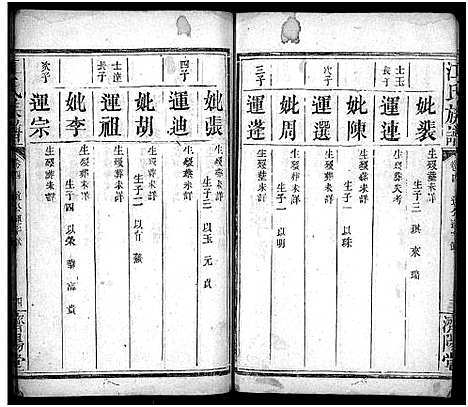 江氏族譜
三 濟陽堂
士玉長子
運連 生歿葬失考
妣裴 生歿葬未詳
生子三 琪 來 瑞
次子
運選 生歿葬未詳
妣陳 生歿葬未詳
生子一 以珠
三子
運蓬 生歿葬未詳
妣周 生歿葬未詳
生子一 以明
四子
運迪 生歿葬未詳
妣張 生歿葬未詳
生子三 以玉 元 貞
士達長子
運祖 生歿葬未詳
妣胡 生歿葬未詳
生子二 以
次子
運宗 生歿葬未詳
妣李 生歿葬未詳
生子四 以榮 華 富 貴
四 濟陽堂